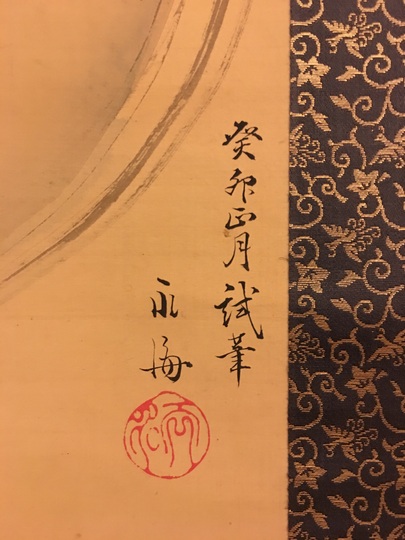 癸卯正月試筆
永海